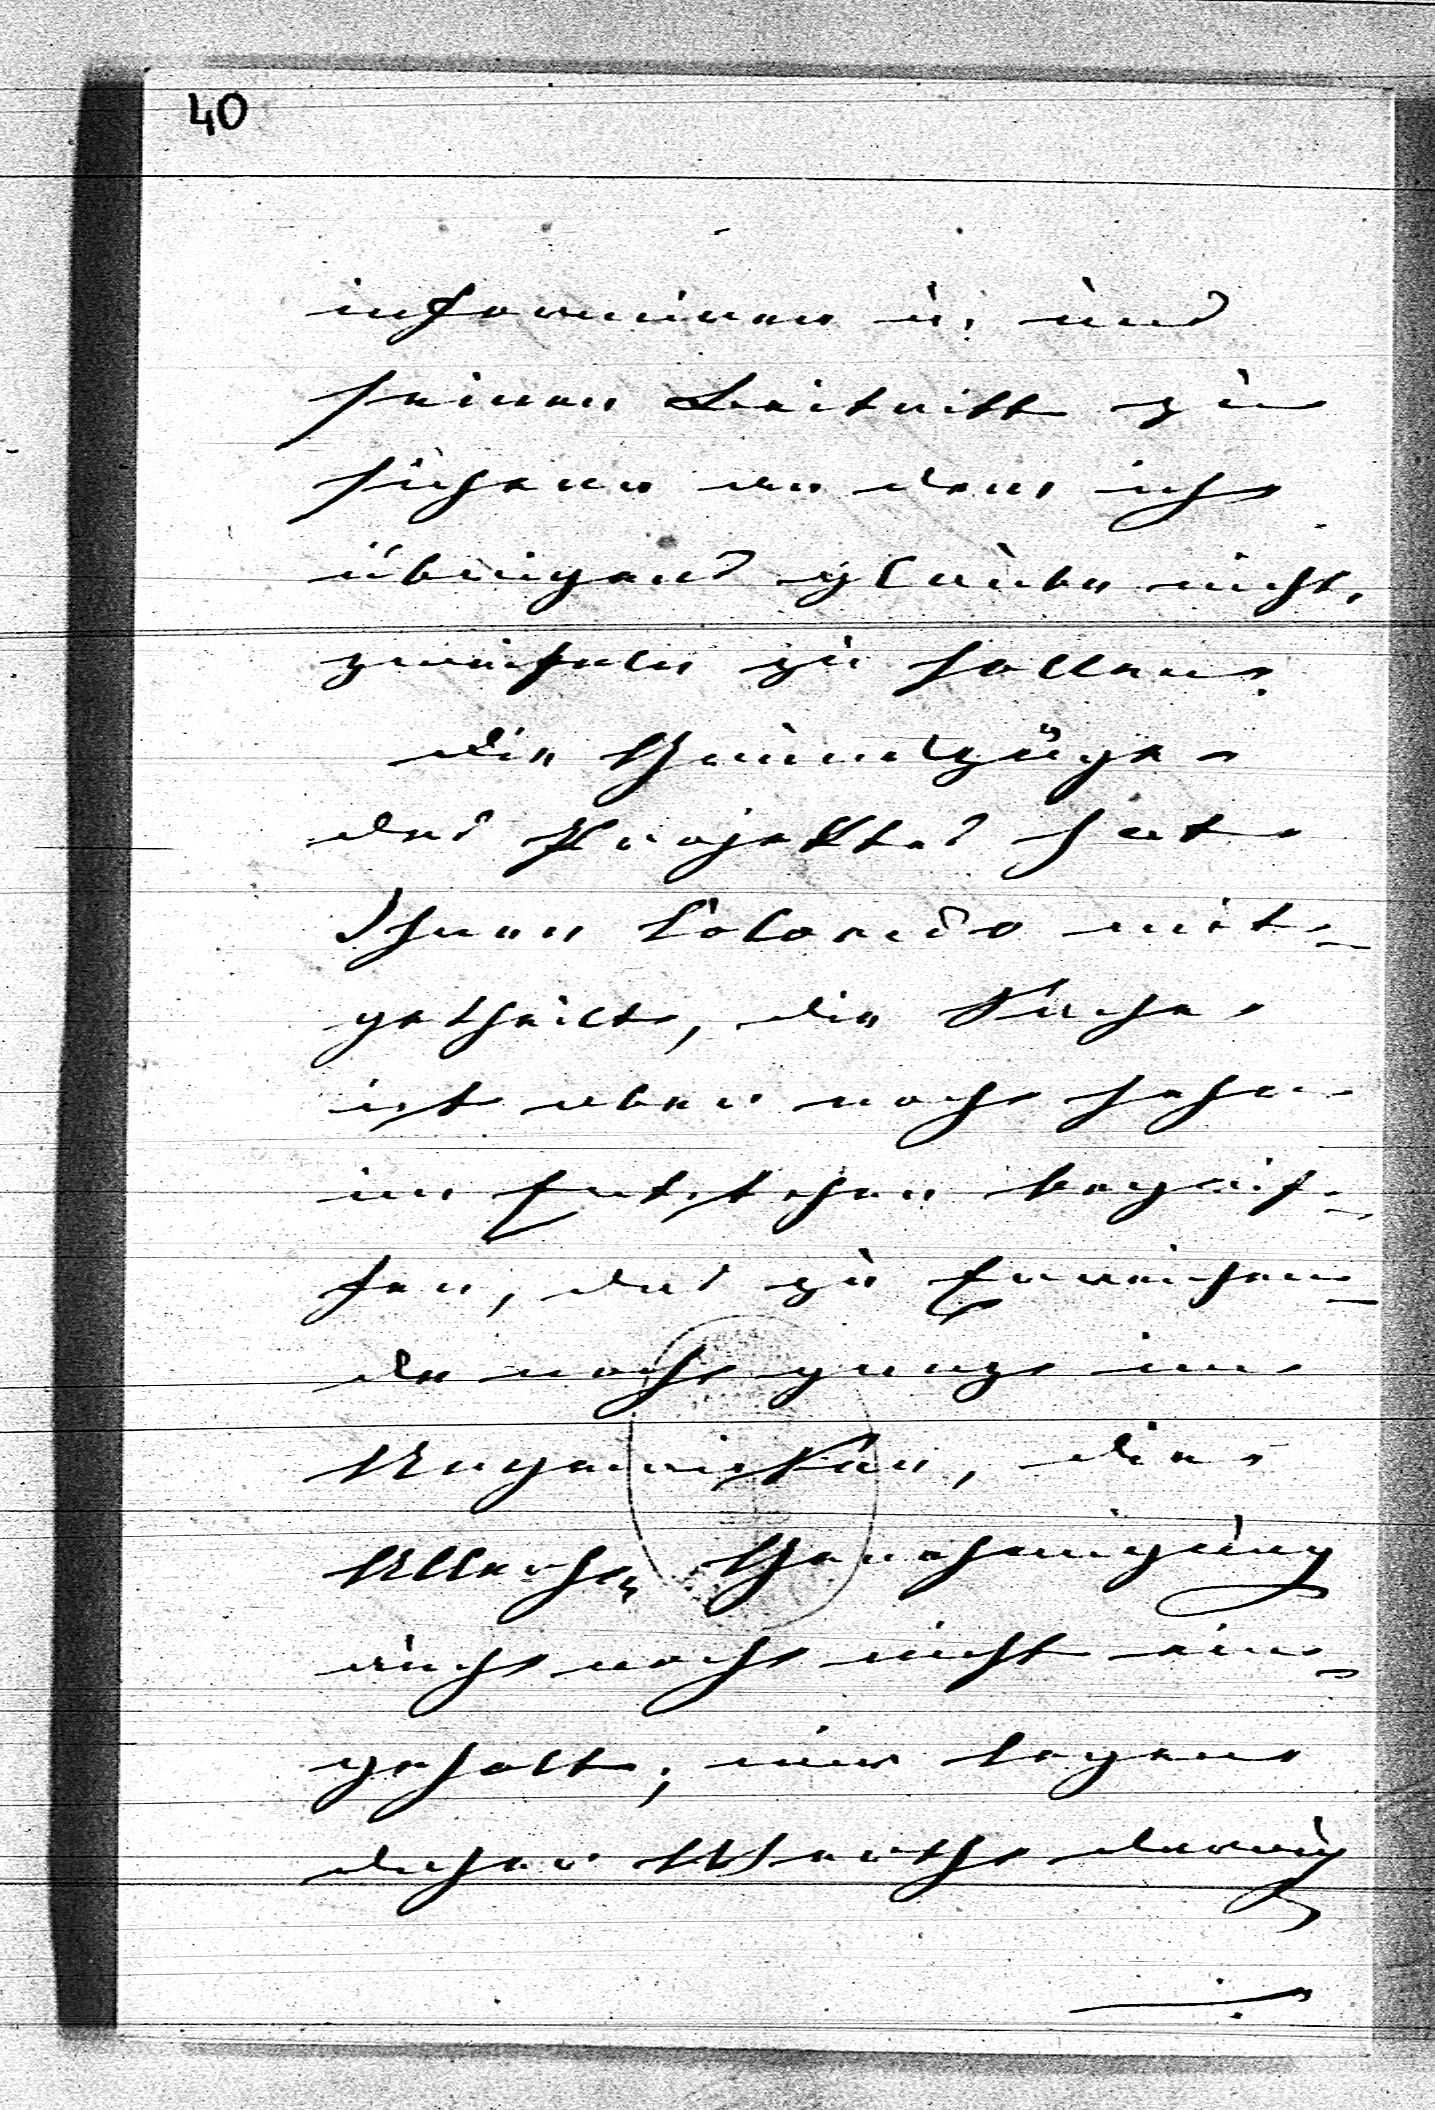 40
informiren u. uns
seinen Beitritt zu
sichern an dem ich
übrigens glaube nicht
zweifeln zu sollen.
Die Grundzüge
des Projektes hat
Ihnen Coloredo mit-
getheilt, die Sache
ist aber noch sehr
im Entstehen begrif-
fen, das zu Erreichen-
de noch ganz im
Ungewissen, die
Allerh. Genehmigung
auch noch nicht ein-
geholt; wir legen
daher Werth darauf